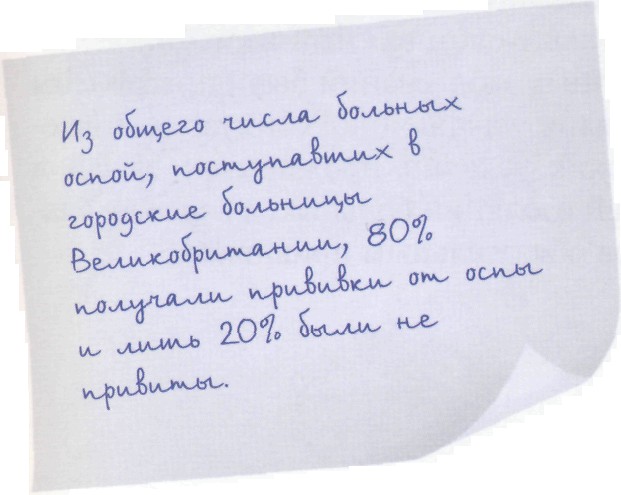 Из общего числа больных
оспой, поступавших в
городские больницы
Великобритании, 80%
получали прививки от оспы
и лишь 20% были не
привиты.